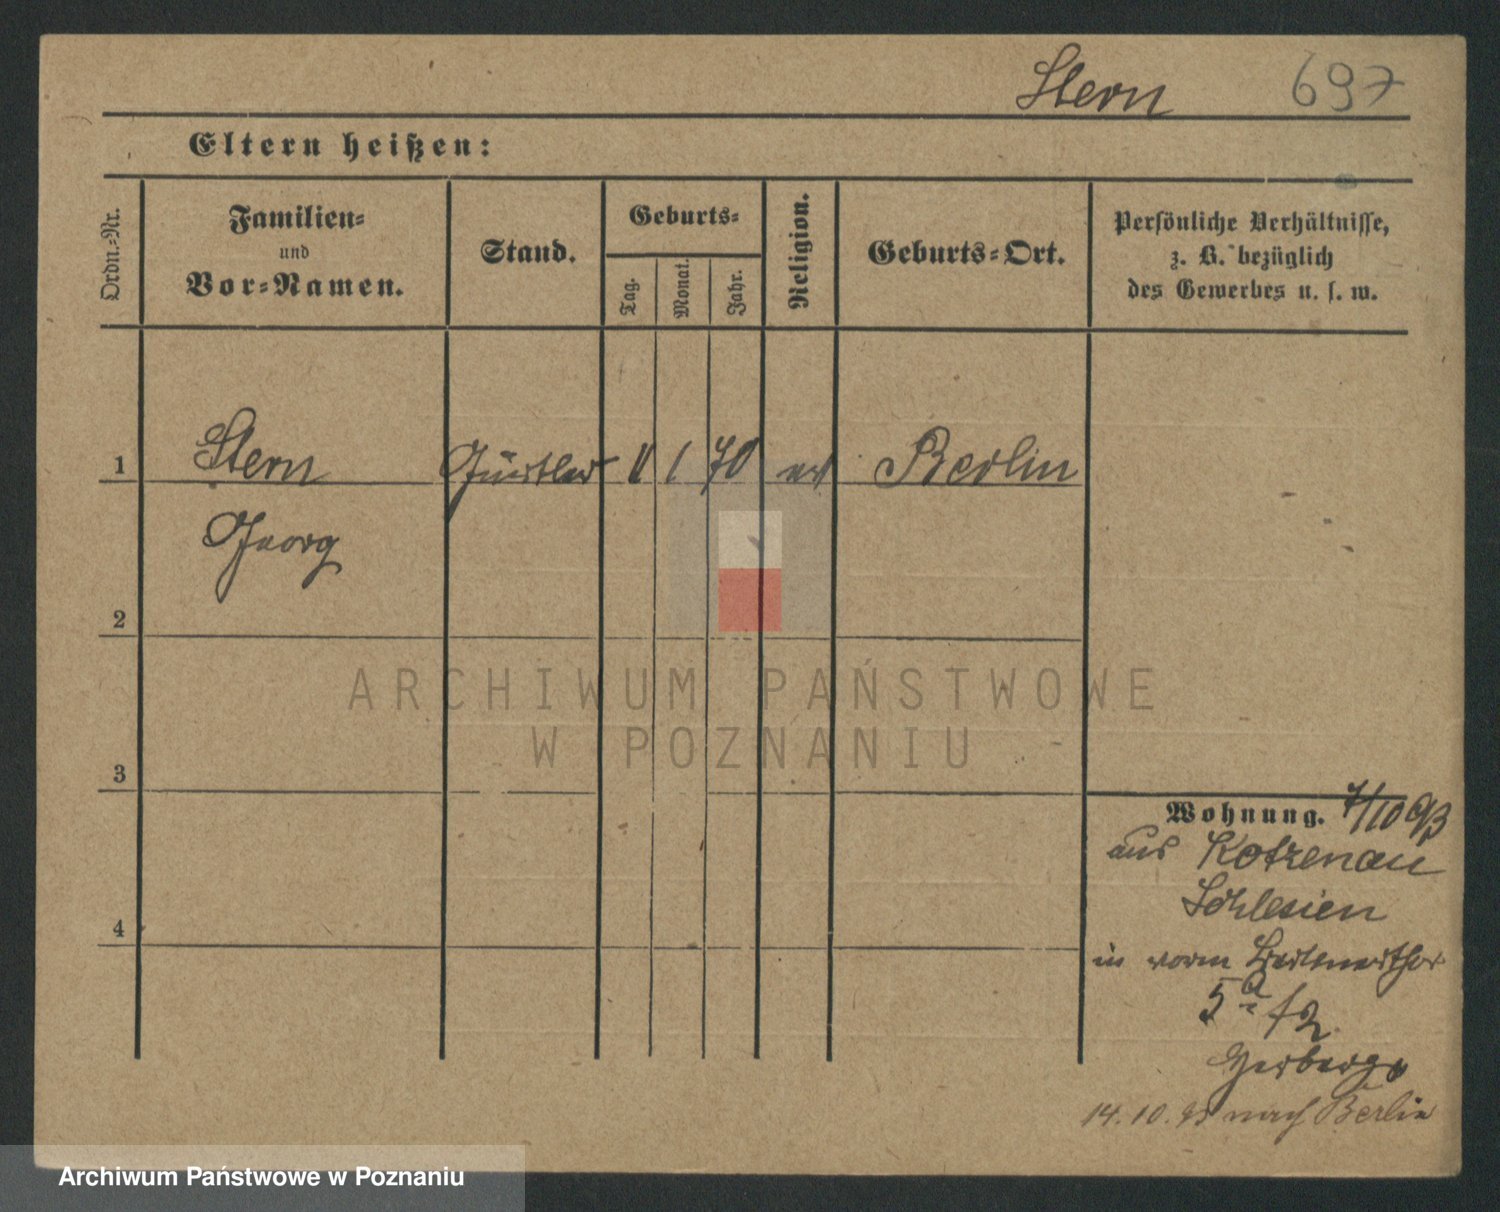 Stern 697
Eltern heißen:
Ordn.-Nr.
Familien-
und
Vor-Namen.
Stand.
Geburts-
Tag.
Monat.
Jahr.
Religion.
Geburts-Ort.
Persönliche Verhältnisse,
z. B. bezüglich
des Gewerbes u. s. w.
1 Stern Gürtler 1 70 Berlin
Georg
2
3
4
Wohnung. 7/10 93
aus Kotzenau
Schlesien
in vorm
5a f 2
14.10.93 nach Berlin
ARCHIWUM PAŃSTWOWE
W POZNANIU
Archiwum Państwowe w Poznaniu